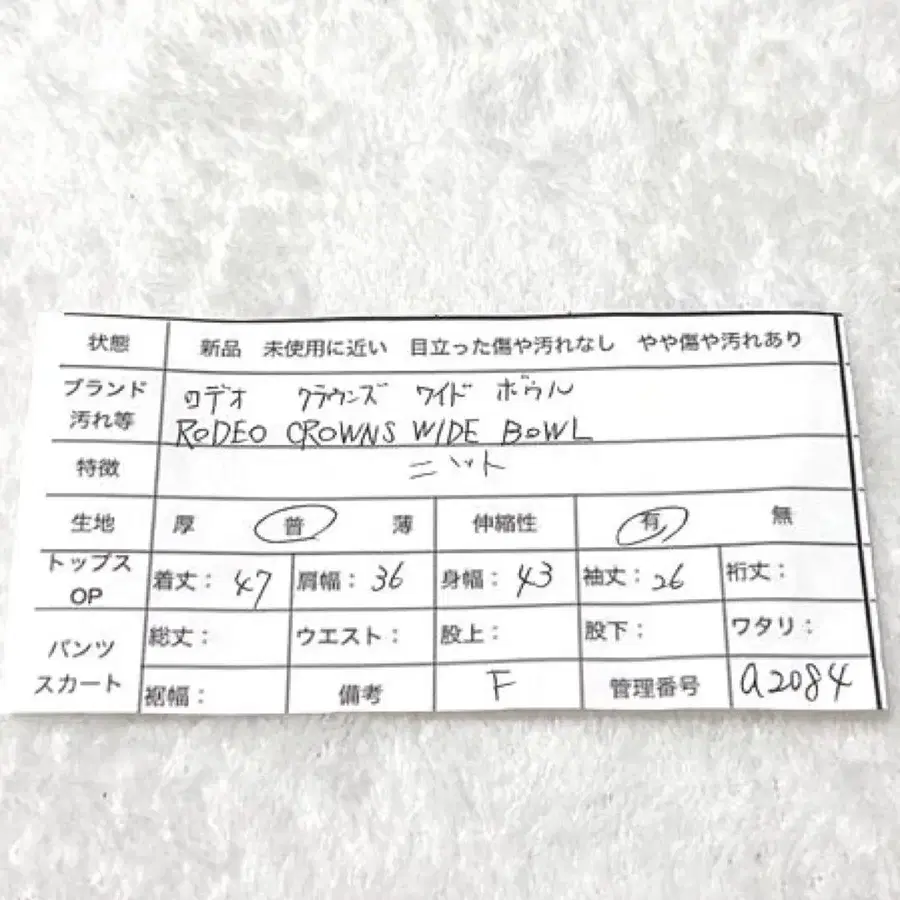 状態 新品 未使用に近い 目立った傷や汚れなし やや傷や汚れあり
ブランド ロデオ クラウンズ ワイド ボウル
汚れ等 RODEO CROWNS WIDE BOWL
特徴 ニット
生地 厚 普 薄 伸縮性 有 無
トップス OP 着丈: 47 肩幅: 36 身幅: 43 袖丈: 26 裄丈:
パンツ スカート 総丈: ウエスト: 股上: 股下: ワタリ:
裾幅: 備考 F 管理番号 a2084